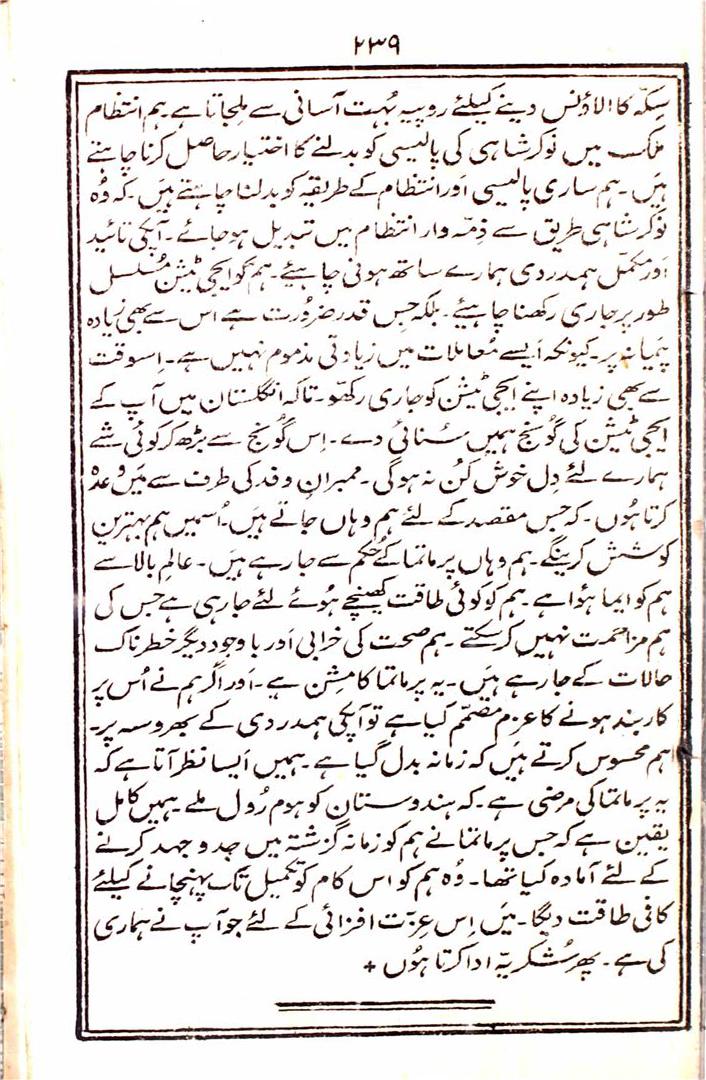 ۲۳۹
سِکّہ کا الاؤنس دینے کیلئے روپیہ بُہت آسانی سے مِلجاتا ہے۔ ہم انتظام
مُلک میں نوکر شاہی کی پالیسی کو بدلنے کا اختیار حاصل کرنا چاہتے
ہیں۔ ہم ساری پالیسی اَور انتظام کے طریقہ کو بدلنا چاہتے ہیَں۔ کہ وُہ
نوکر شاہی طریق سے ذِمّہ وار انتظام میں تبدیل ہو جائے۔ آپکی تائید
اَور مکمّل ہمدردی ہمارے ساتھ ہونی چاہیئے۔ ہم کو ایجی ٹیشن مُسلسل
طور پر جاری رکھنا چاہیئے۔ بلکہ جس قدر ضرُورت ہے اس سے بھی زیادہ
پیَمانہ پر۔ کیونکہ اَیسے مُعاملات میں زیادتی مذموم نہیں ہے۔ اِسوقت
سے بھی زیادہ اپنے ایجی ٹیشن کو جاری رکھّو۔ تاکہ انگلستان میں آپ کے
ایجی ٹیشن کی گُونج ہمیں سُنائی دے۔ اِس گُونج سے بڑھ کر کوئی شے
ہمارے لئے دِل خوش کُن نہ ہو گی۔ ممبرانِ وفد کی طرف سے میَں وعدہ
کرتا ہُوں۔ کہ جس مقصد کے لئے ہم وہاں جاتے ہیں۔ اُسمیں ہم بہترین
کوشش کرینگے۔ ہم وہاں پرماتما کے حُکم سے جا رہے ہیَں۔ عالمِ بالا سے
ہم کو ایما ہؤا ہے۔ ہم کو کوئی طاقت کھینچے ہُوئے لئے جا رہی ہے جس کی
ہم مزاحمت نہیں کر سکتے۔ ہم صحت کی خرابی اَور باوجود دیگر خطرناک
حالات کے جا رہے ہیَں۔ یہ پرماتما کا مِشن ہے۔ اَور اگر ہم نے اُس پر
کاربند ہونے کا عزم مصمّم کیا ہے تو آپکی ہمدردی کے بھروسہ پر۔
ہم محسوس کرتے ہیَں کہ زمانہ بدل گیا ہے۔ ہمیں اَیسا نظر آتا ہے کہ
یہ پرماتما کی مرضی ہے۔ کہ ہندوستان کو ہوم رُول ملے۔ ہمیں کامل
یقین ہے کہ جس پرماتما نے ہم کو زمانہ گزشتہ میں جدوجہد کرنے
کے لئے آمادہ کیا تھا۔ وُہ ہم کو اس کام کو تکمیل تک پہنچانے کیلئے
کافی طاقت دیگا۔ میَں اِس عِزّت افزائی کے لئے جو آپ نے ہماری
کی ہے۔ پھر شُکریّہ ادا کرتا ہُوں +